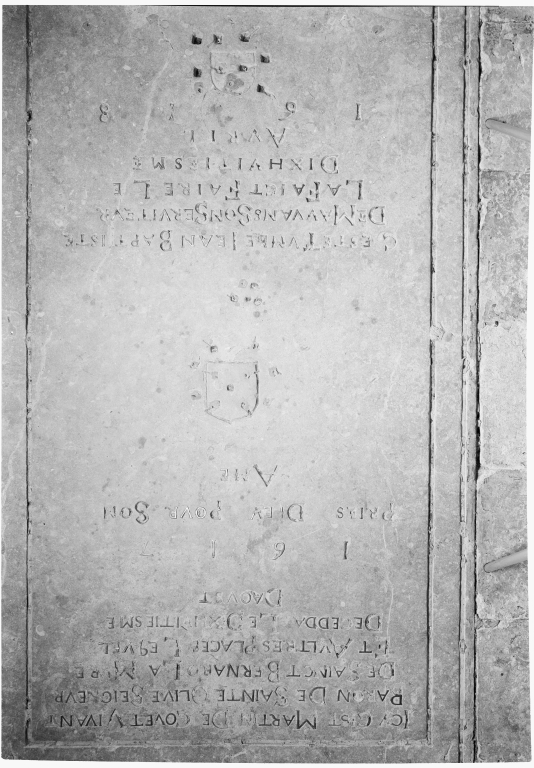 ICY GIST MARTIN DE COVET VIVANT
BARON DE SAINTE OLIVE SEIGNEVR
DE SAINCT BERNARD LA MVRE
ET AVLTRES PLACES LEQVEL
DECEDDA LE DIXHVITIESME
DAOVST
1 6 1 7
PRIAS DIEV POVR SON
AME
CESTE TVMBE IEAN BAPTISTE
DE MAVVANS SON SERVITEVR
LA FAICT FAIRE LE
DIXHVITIESME
AVRIL